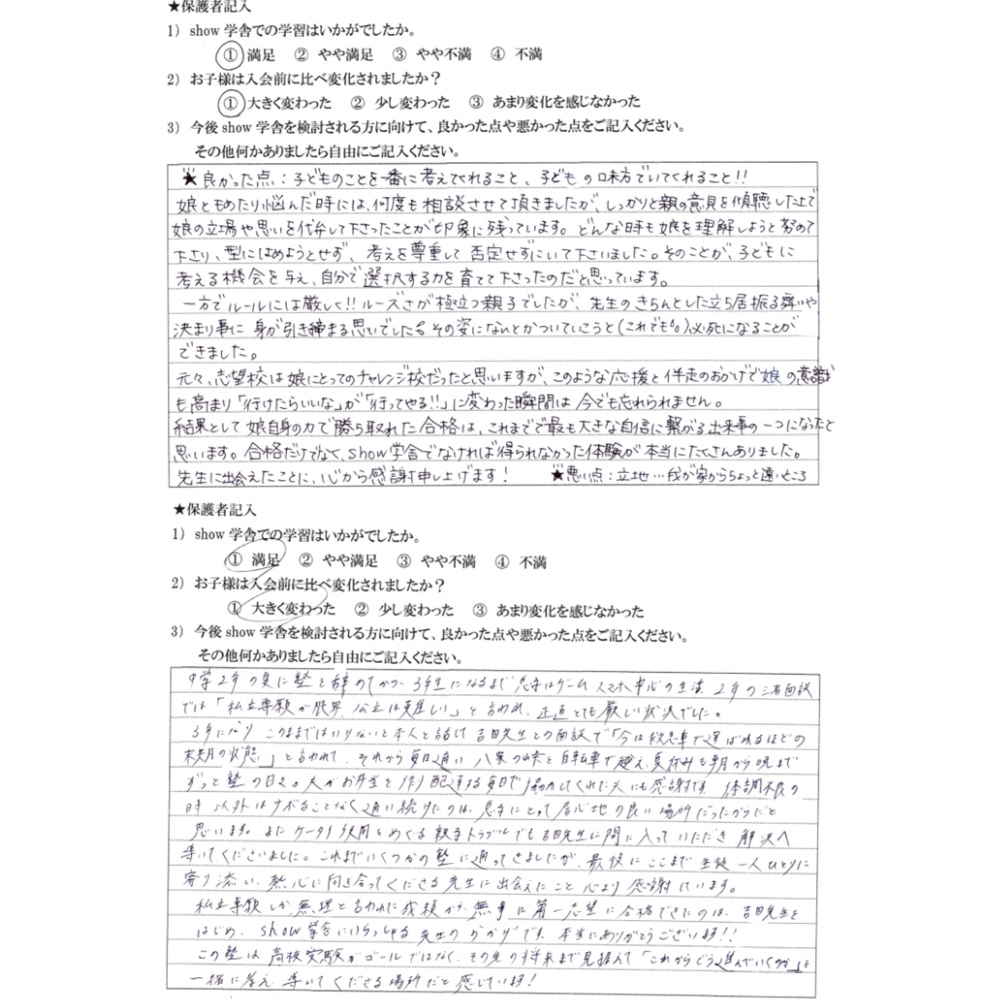 ★保護者記入
1）show 学舎での学習はいかがでしたか。
① 満足 ② やや満足 ③ やや不満 ④ 不満
2）お子様は入会前に比べ変化されましたか？
① 大きく変わった ② 少し変わった ③ あまり変化を感じなかった
3）今後 show 学舎を検討される方に向けて、良かった点や悪かった点をご記入ください。
その他何かありましたら自由にご記入ください。
★良かった点：子どものことを一番に考えてくれること、子どもの味方でいてくれること!!
娘ともめたり悩んだ時には、何度も相談させて頂きましたが、しっかりと親の意見を傾聴した上で
娘の立場や思いを代弁して下さったことが印象に残っています。どんな時も娘を理解しようと努めて
下さり、型にはめようとせず、考えを尊重して否定せずにいて下さいました。そのことが、子どもに
考える機会を与え、自分で選択する力を育てて下さったのだと思っています。
一方でルールには厳しく!!ルーズさが極立つ親子でしたが、先生のきちんとした立ち居振る舞いや
決まり事に身が引き締まる思いでした。その姿になんとかついていこうと(これでも。)必死になることが
できました。
元々、志望校は娘にとってのチャレンジ校だったと思いますが、このような応援と伴走のおかげで娘の意識
も高まり「行けたらいいな」が「行ってやる!!」に変わった瞬間は今でも忘れられません。
結果として娘自身の力で勝ち取れた合格は、これまでで最も大きな自信に繋がる出来事の一つになったと
思います。合格だけでなく、show学舎でなければ得られなかった体験が本当にたくさんありました。
先生に出会えたことに、心から感謝申し上げます！ ★悪い点：立地…我が家からちょっと遠いところ
★保護者記入
1）show 学舎での学習はいかがでしたか。
① 満足 ② やや満足 ③ やや不満 ④ 不満
2）お子様は入会前に比べ変化されましたか？
① 大きく変わった ② 少し変わった ③ あまり変化を感じなかった
3）今後 show 学舎を検討される方に向けて、良かった点や悪かった点をご記入ください。
その他何かありましたら自由にご記入ください。
中学2年の夏に塾を辞めてから、3年生になるまで息子はゲーム スマホ中心の生活、2年の三者面談
では「私立専願が限界、公立は難しい」と言われ、正直とても厳しい状況でした。
3年になり このままではいけないと本人と話し 吉田先生との面談で「今は救急車で運ばれるほどの
末期の状態」と言われて、それから毎日通い 八家の峠を自転車で越え、夏休みも朝から晩まで
ずっと塾の日々。夫がお弁当を作り配達する毎日で協力してくれた夫にも感謝です。体調不良の
時以外は サボることなく通い続けたのは、息子にとって居心地の良い場所だったからだと
思います。またケータイ使用をめぐる親子トラブルでも吉田先生に間に入っていただき 解決へ
導いてくださいました。これまでいくつかの塾に通ってきましたが、最後にここまで生徒一人ひとりに
寄り添い、熱心に向き合ってくださる先生に出会えたこと 心より感謝しています。
私立専願しか無理と言われた成績から、無事に第一志望に合格できたのは、吉田先生を
はじめ、show学舎にいらっしゃる先生のおかげです、本当にありがとうございます!!
この塾は高校受験がゴールではなく、その先の将来まで見据えて「これからどう進んでいくのか」を
一緒に考え、導いてくださる場所だと感じています！